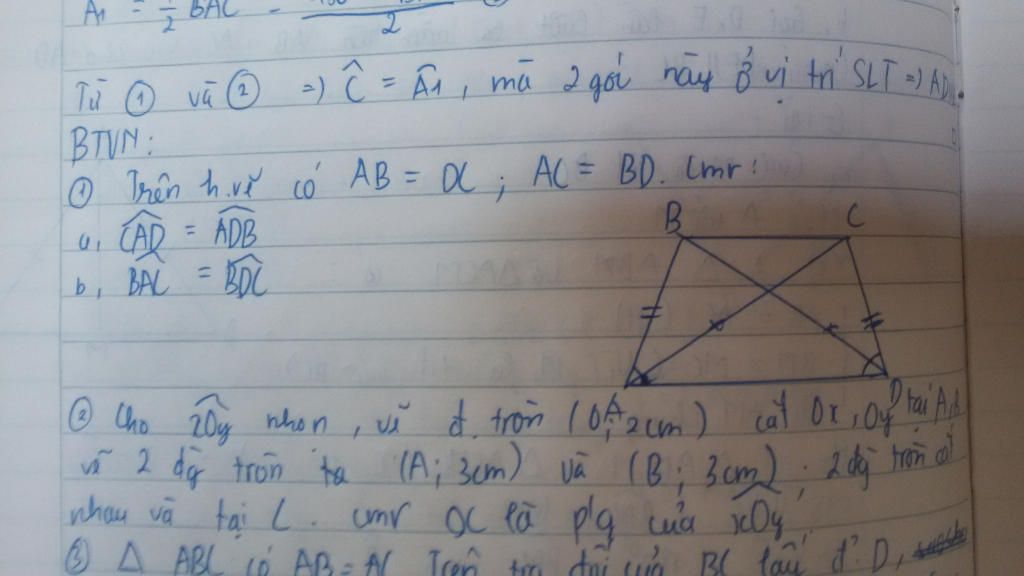 A1 = 1/2 BAC = 2
Từ ① và ② => Ĉ = Â1, mà 2 gói này ở vị trí SLT => AD
BTVN:
① Trên h.vẽ có AB = DC ; AC = BD. Cmr:
a, CAD = ADB
b, BAC = BDC
B C
A D
② Cho xOy nhọn, vẽ đ. tròn (O; 2cm) cắt Ox, Oy tại A, B
vẽ 2 đg tròn ta (A; 3cm) và (B; 3cm); 2 đg tròn cắt
nhau và tại C. cmr OC là p'g của xOy
③ Δ ABC có AB = AC Trên tia đối của BC lấy đ' D,